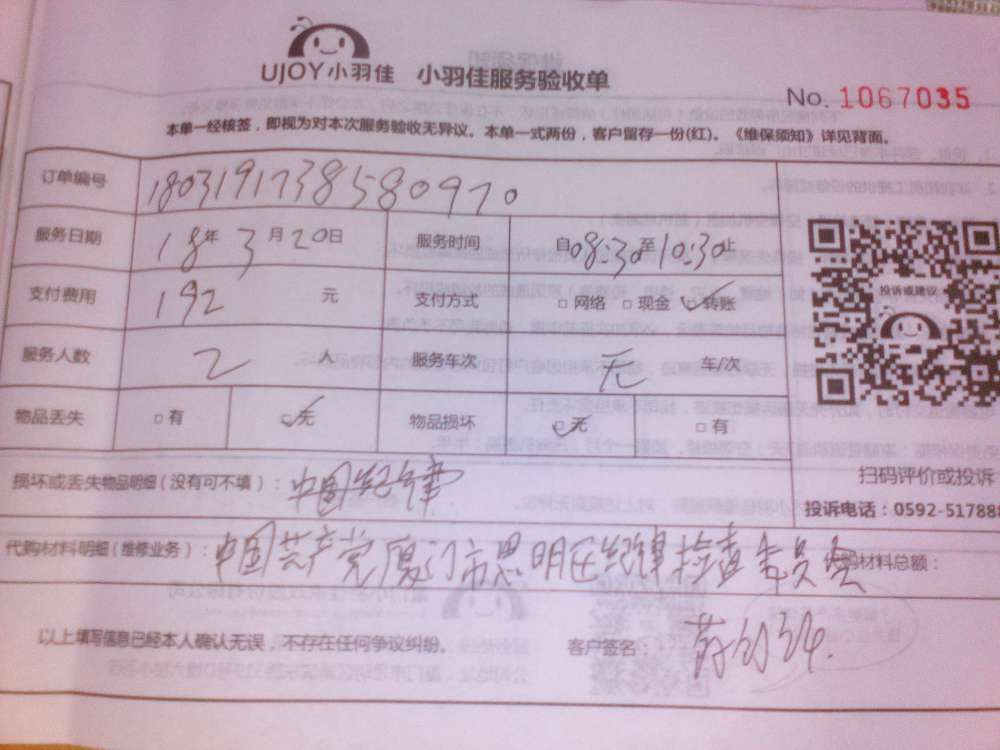 UJOY小羽佳 小羽佳服务验收单
No. 1067035
本单一经核签，即视为对本次服务验收无异议。本单一式两份，客户留存一份(红)。《维保须知》详见背面。
订单编号 1803191738580970
服务日期 18年3月20日 服务时间 自08:30至10:30止
支付费用 192 元 支付方式 □网络 □现金 ☑转账
服务人数 2 人 服务车次 无 车/次
物品丢失 □有 ☑无 物品损坏 ☑无 □有
投诉或建议
扫码评价或投诉
损坏或丢失物品明细(没有可不填)：中国纪律
投诉电话：0592-517888
代购材料明细(维修业务)：中国共产党厦门市思明区纪律检查委员会 购材料总额：
以上填写信息已经本人确认无误，不存在任何争议纠纷。 客户签名：